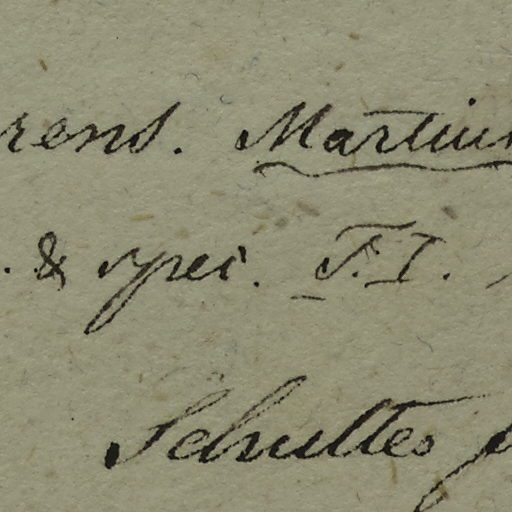 rens. Martiu
. & spec. T. I.
Schultes f